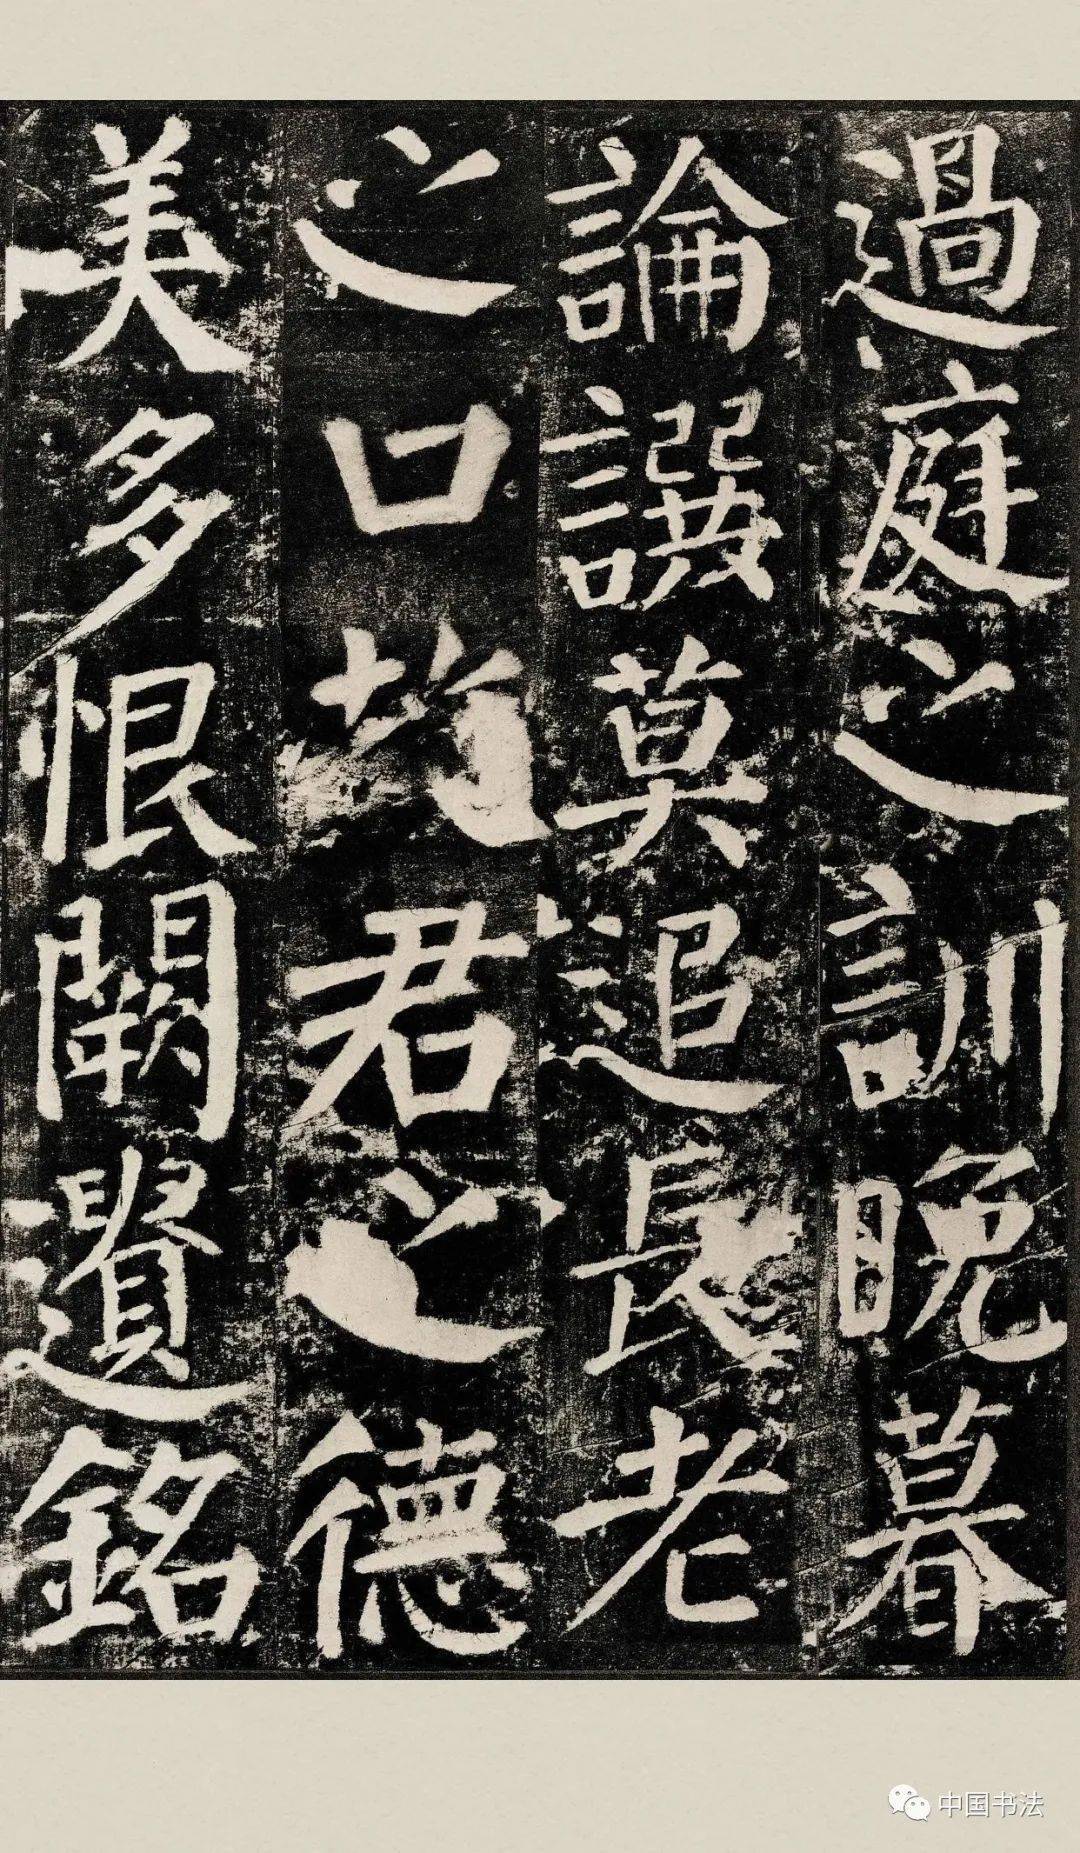 過庭之訓晚暮
論譔莫追長老
之口故君之德
美多恨闕遺銘
中国书法